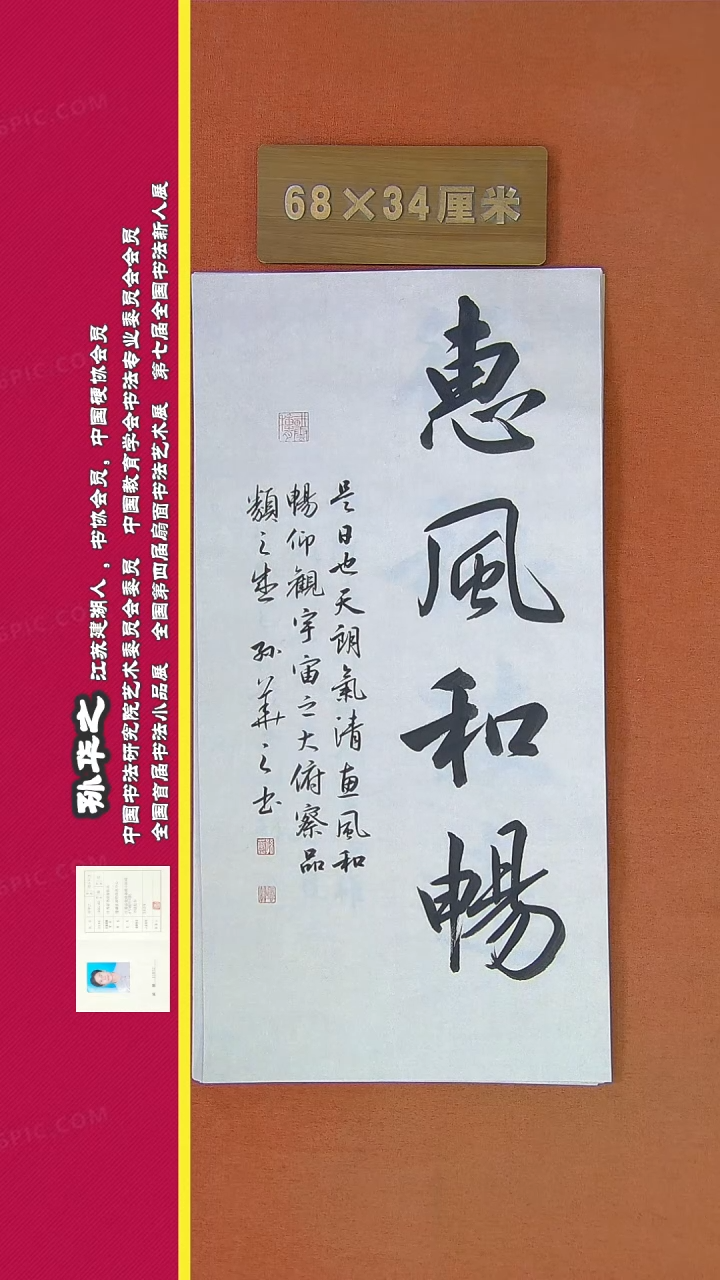 68×34厘米
惠風和暢
是日也天朗氣清惠風和
暢仰觀宇宙之大俯察品
類之盛 孫華之書
孙华之 江苏建湖人，书协会员，中国硬协会员
中国书法研究院艺术委员会委员 中国教育学会书法专业委员会会员
全国首届书法小品展 全国第四届扇面书法艺术展 第七届全国书法新人展